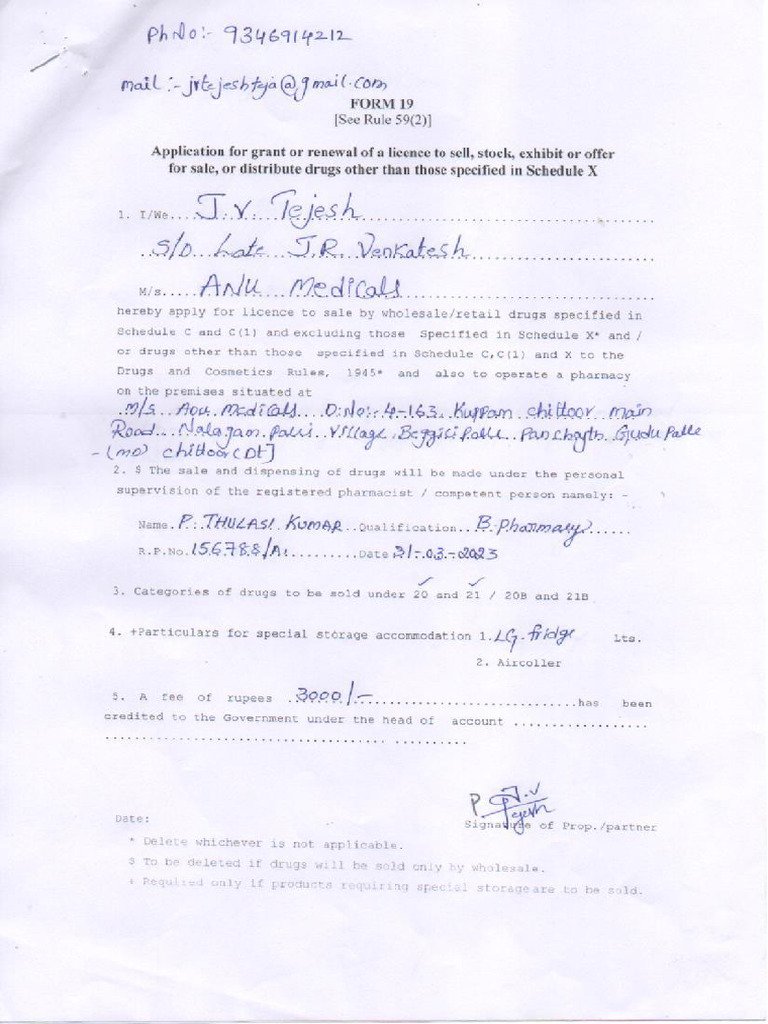 Ph No:- 9346914212
mail:- jvtejeshteja@gmail.com
FORM 19
[See Rule 59(2)]
Application for grant or renewal of a licence to sell, stock, exhibit or offer
for sale, or distribute drugs other than those specified in Schedule X
1. I/We....J.V. Tejesh
S/o Late J.R. Venkatesh
M/s.....ANU Medicals
hereby apply for licence to sale by wholesale/retail drugs specified in
Schedule C and C(1) and excluding those Specified in Schedule X* and /
or drugs other than those specified in Schedule C,C(1) and X to the
Drugs and Cosmetics Rules, 1945* and also to operate a pharmacy
on the premises situated at
M/s. Anu Medicals D.No:- 4-163 Kuppam chittoor main
Road Nalagam Palli Village, Beggili Palle Panchayth Gudu Palle
- (md) chittoor (Dt]
2. $ The sale and dispensing of drugs will be made under the personal
supervision of the registered pharmacist / competent person namely: -
Name. P. THULASI KUMAR Qualification... B. Pharmacy
R.P.No. 156788/A1 Date 31-03-2023
3. Categories of drugs to be sold under 20 and 21 / 20B and 21B
4. +Particulars for special storage accommodation 1. LG fridge Lts.
2. Aircoller
5. A fee of rupees 3000/- has been
credited to the Government under the head of account
P J.V
Tejesh
Signature of Prop./partner
Date:
* Delete whichever is not applicable.
$ To be deleted if drugs will be sold only by wholesale.
+ Required only if products requiring special storage are to be sold.